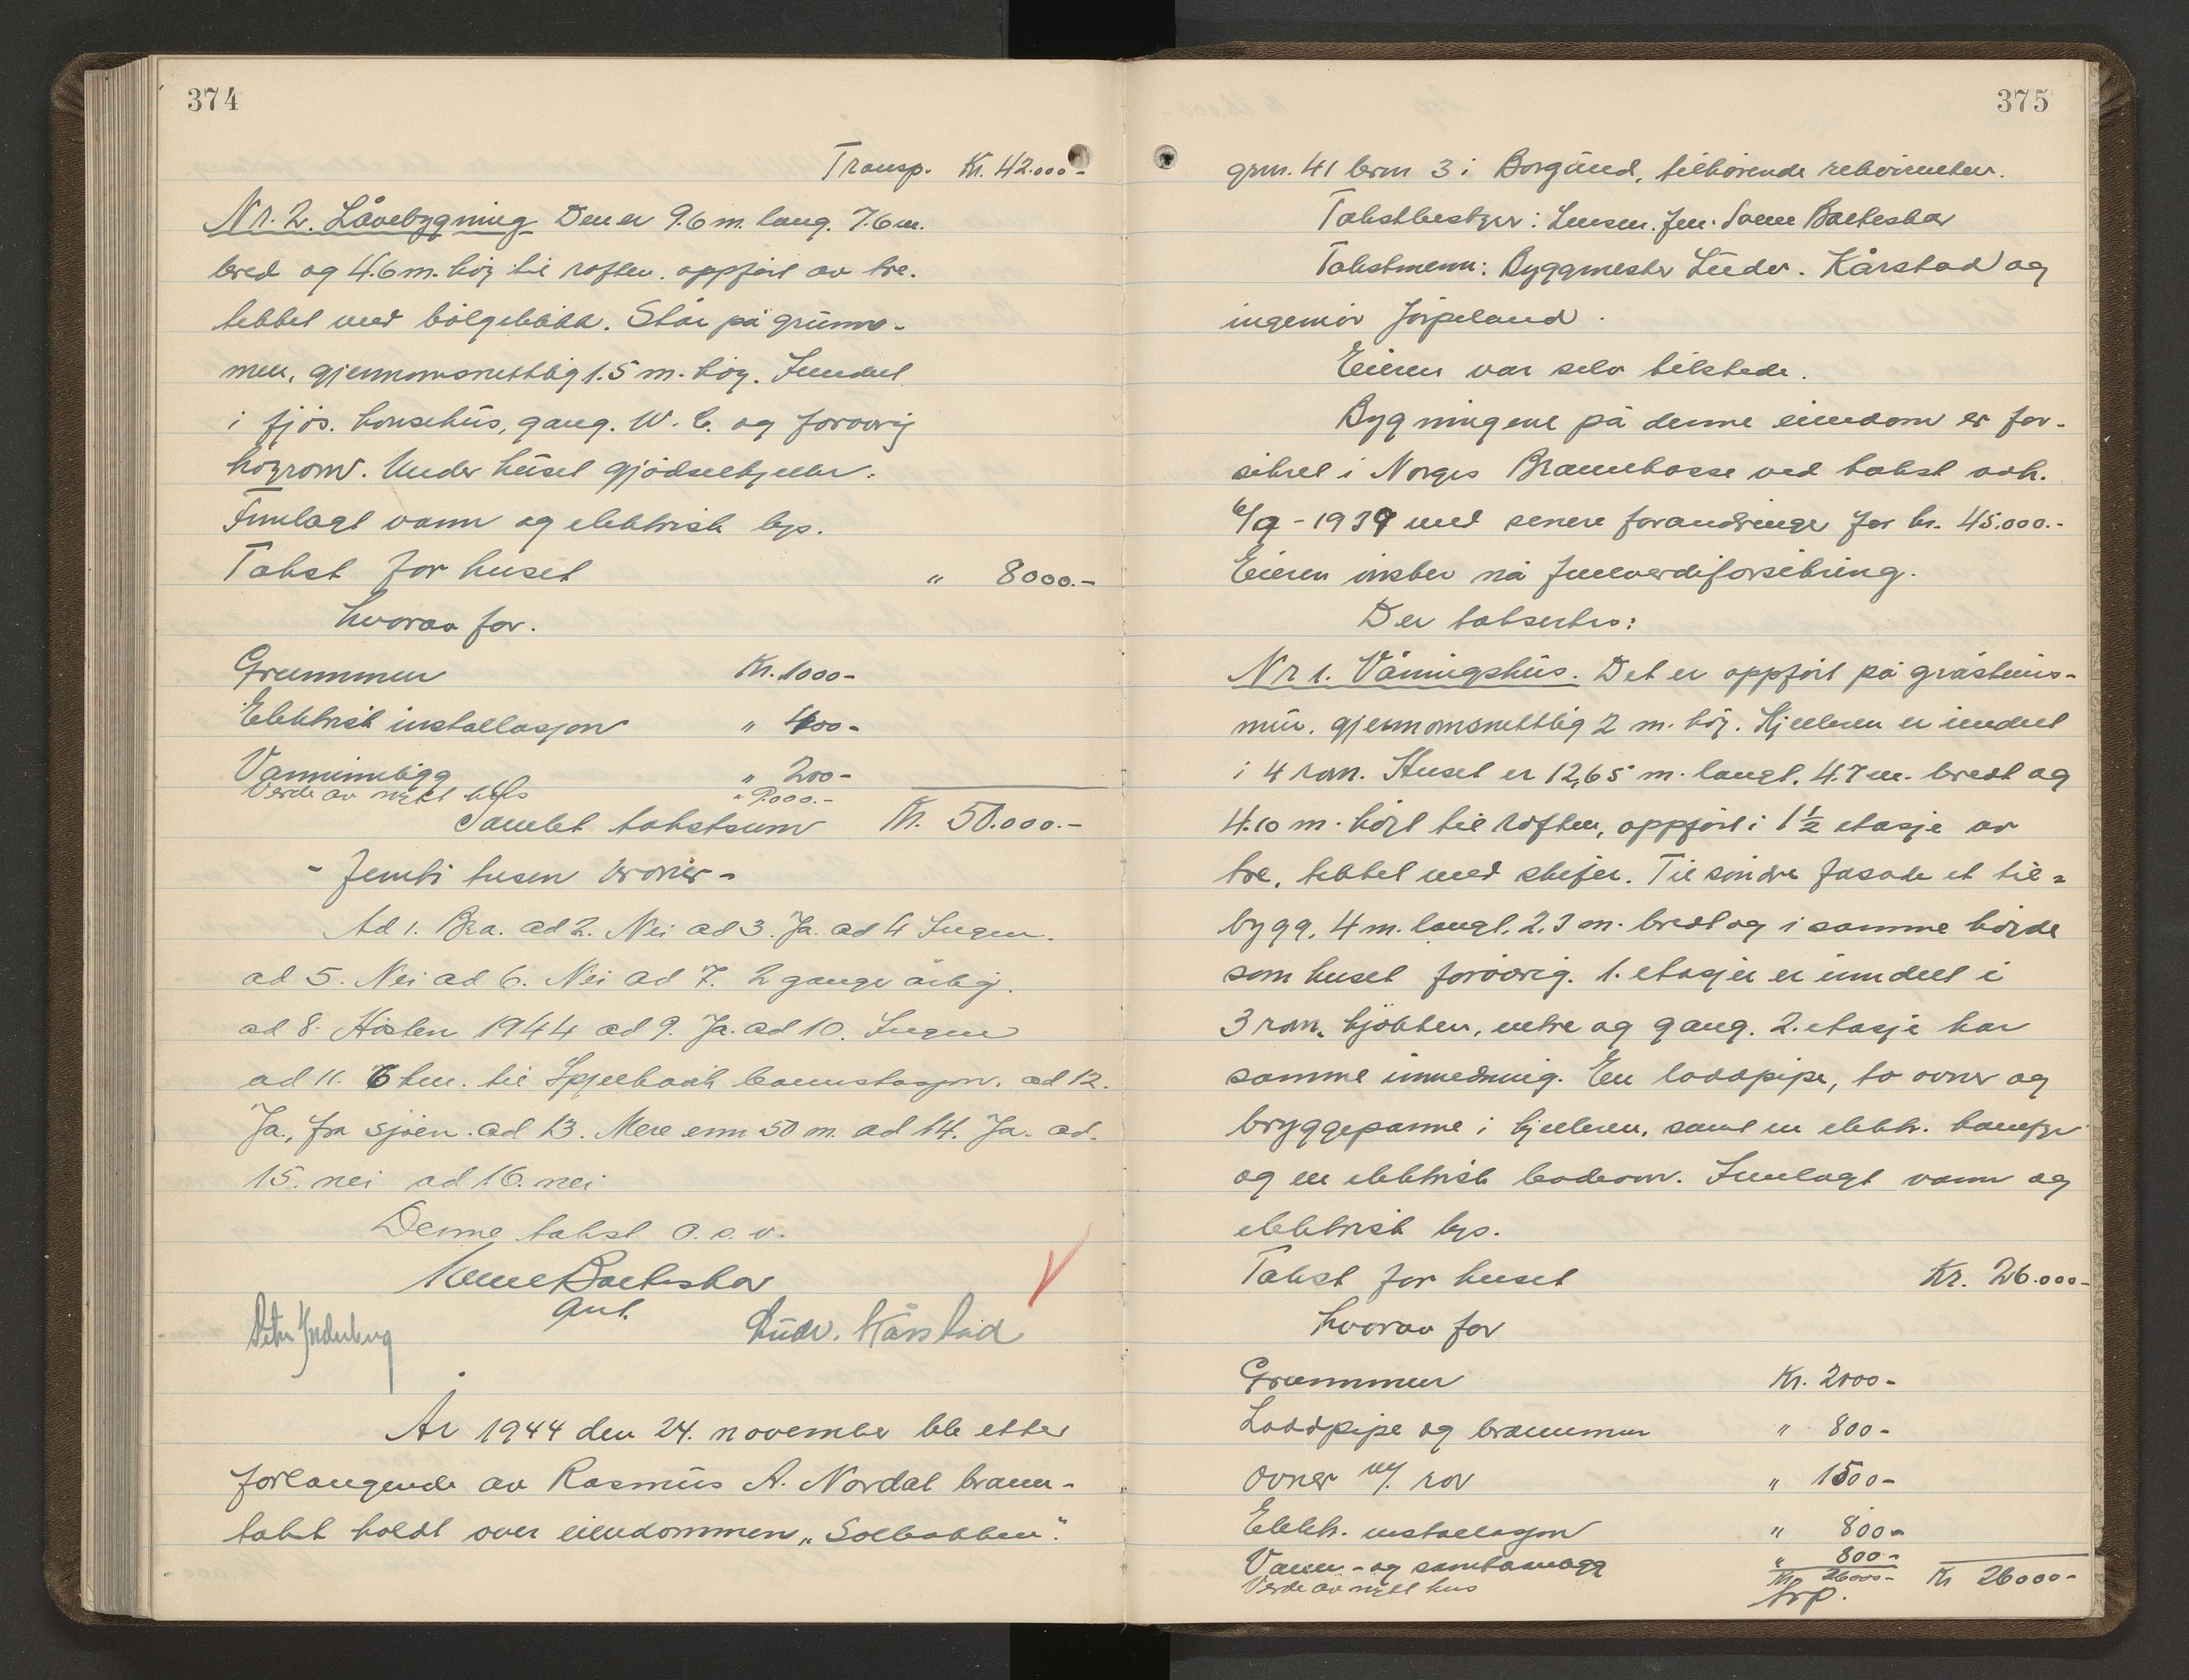 374
Transp. Kr. 42.000-
Nr. 2. Låvebygning Den er 9.6 m. lang. 7.6 m.
bred og 4.6 m. høy til raften. oppført av tre.
tekket med bølgeblikk. Står på grunn-
mur, gjennomsnittlig 1.5 m. høy. Inndelt
i fjøs. hønsehus, gang. W. C. og forøvrig
høyrom. Under huset gjødselkjeller.
Innlagt vann og elektrisk lys.
Takst for huset " 8000.-
hvorav for.
Grunnmur Kr. 1000-
Elektrisk installasjon " 400-
Vanninnlegg " 200-
Verde av nytt hus " 9.000.-
Samlet takstsum Kr. 50.000.-
- Femti tusen kroner -
Ad 1. Bra. ad 2. Nei ad 3. Ja. ad 4 Ingen.
ad 5. Nei ad 6. Nei ad 7. 2 gange årlig.
ad 8. Høsten 1944 ad 9. Ja. ad 10. Ingen
ad 11. 6 km. til Spjelkavik brannstasjon. ad 12.
Ja., fra sjøen. ad 13. Mere enn 50 m. ad 14. Ja. ad.
15. nei ad 16. nei
Denne takst o. s. v.
Ludv. Kårstad
År 1944 den 24. november ble etter
forlangende av Rasmus A. Nordal brann-
takst holdt over eiendommen „Solbakken".
375
grn. 41 brn 3 i Borgund, tilhørende rekvirenten.
Takstbestyrer: Lensm. fm.
Takstmenn: Byggmester Ludv. Kårstad og
ingeniør Jørpeland.
Eieren var selv tilstede.
Bygningene på denne eiendom er for-
sikret i Norges Brannkasse ved takst avh.
6/9 - 1939 med senere forandringer for kr. 45.000.-
Eieren ønsker nå fullverdiforsikring.
Der taksertes:
Nr 1. Våningshus. Det er oppført på gråsteins-
mur. gjennomsnittlig 2 m. høy. Kjelleren er inndelt
i 4 rom. Huset er 12,65 m. langt. 4.7 m. bredt og
4.10 m. høyt til raften, oppført i 1½ etasje av
tre. tekket med skifer. Til søndre fasade et til=
bygg. 4 m. langt. 2.3 m. bredt og i samme høyde
som huset forøvrig. 1. etasje er inndelt i
3 rom. kjøkken, entre og gang. 2. etasje har
samme innredning. En loddpipe, to ovner og
bryggepanne i kjelleren, samt en elektr. komfyr
og en elektrisk badeovn. Innlagt vann og
elektrisk lys.
Takst for huset Kr. 26.000-
hvorav for
Grunnmur Kr. 2000-
Loddpipe og brannmur " 800-
Ovner m/. rør " 1500-
Elektr. installasjon " 800-
Vann- og sanitæranlegg " 800-
Verde av nytt hus Kr. 26000- Kr 26000-
Trp.